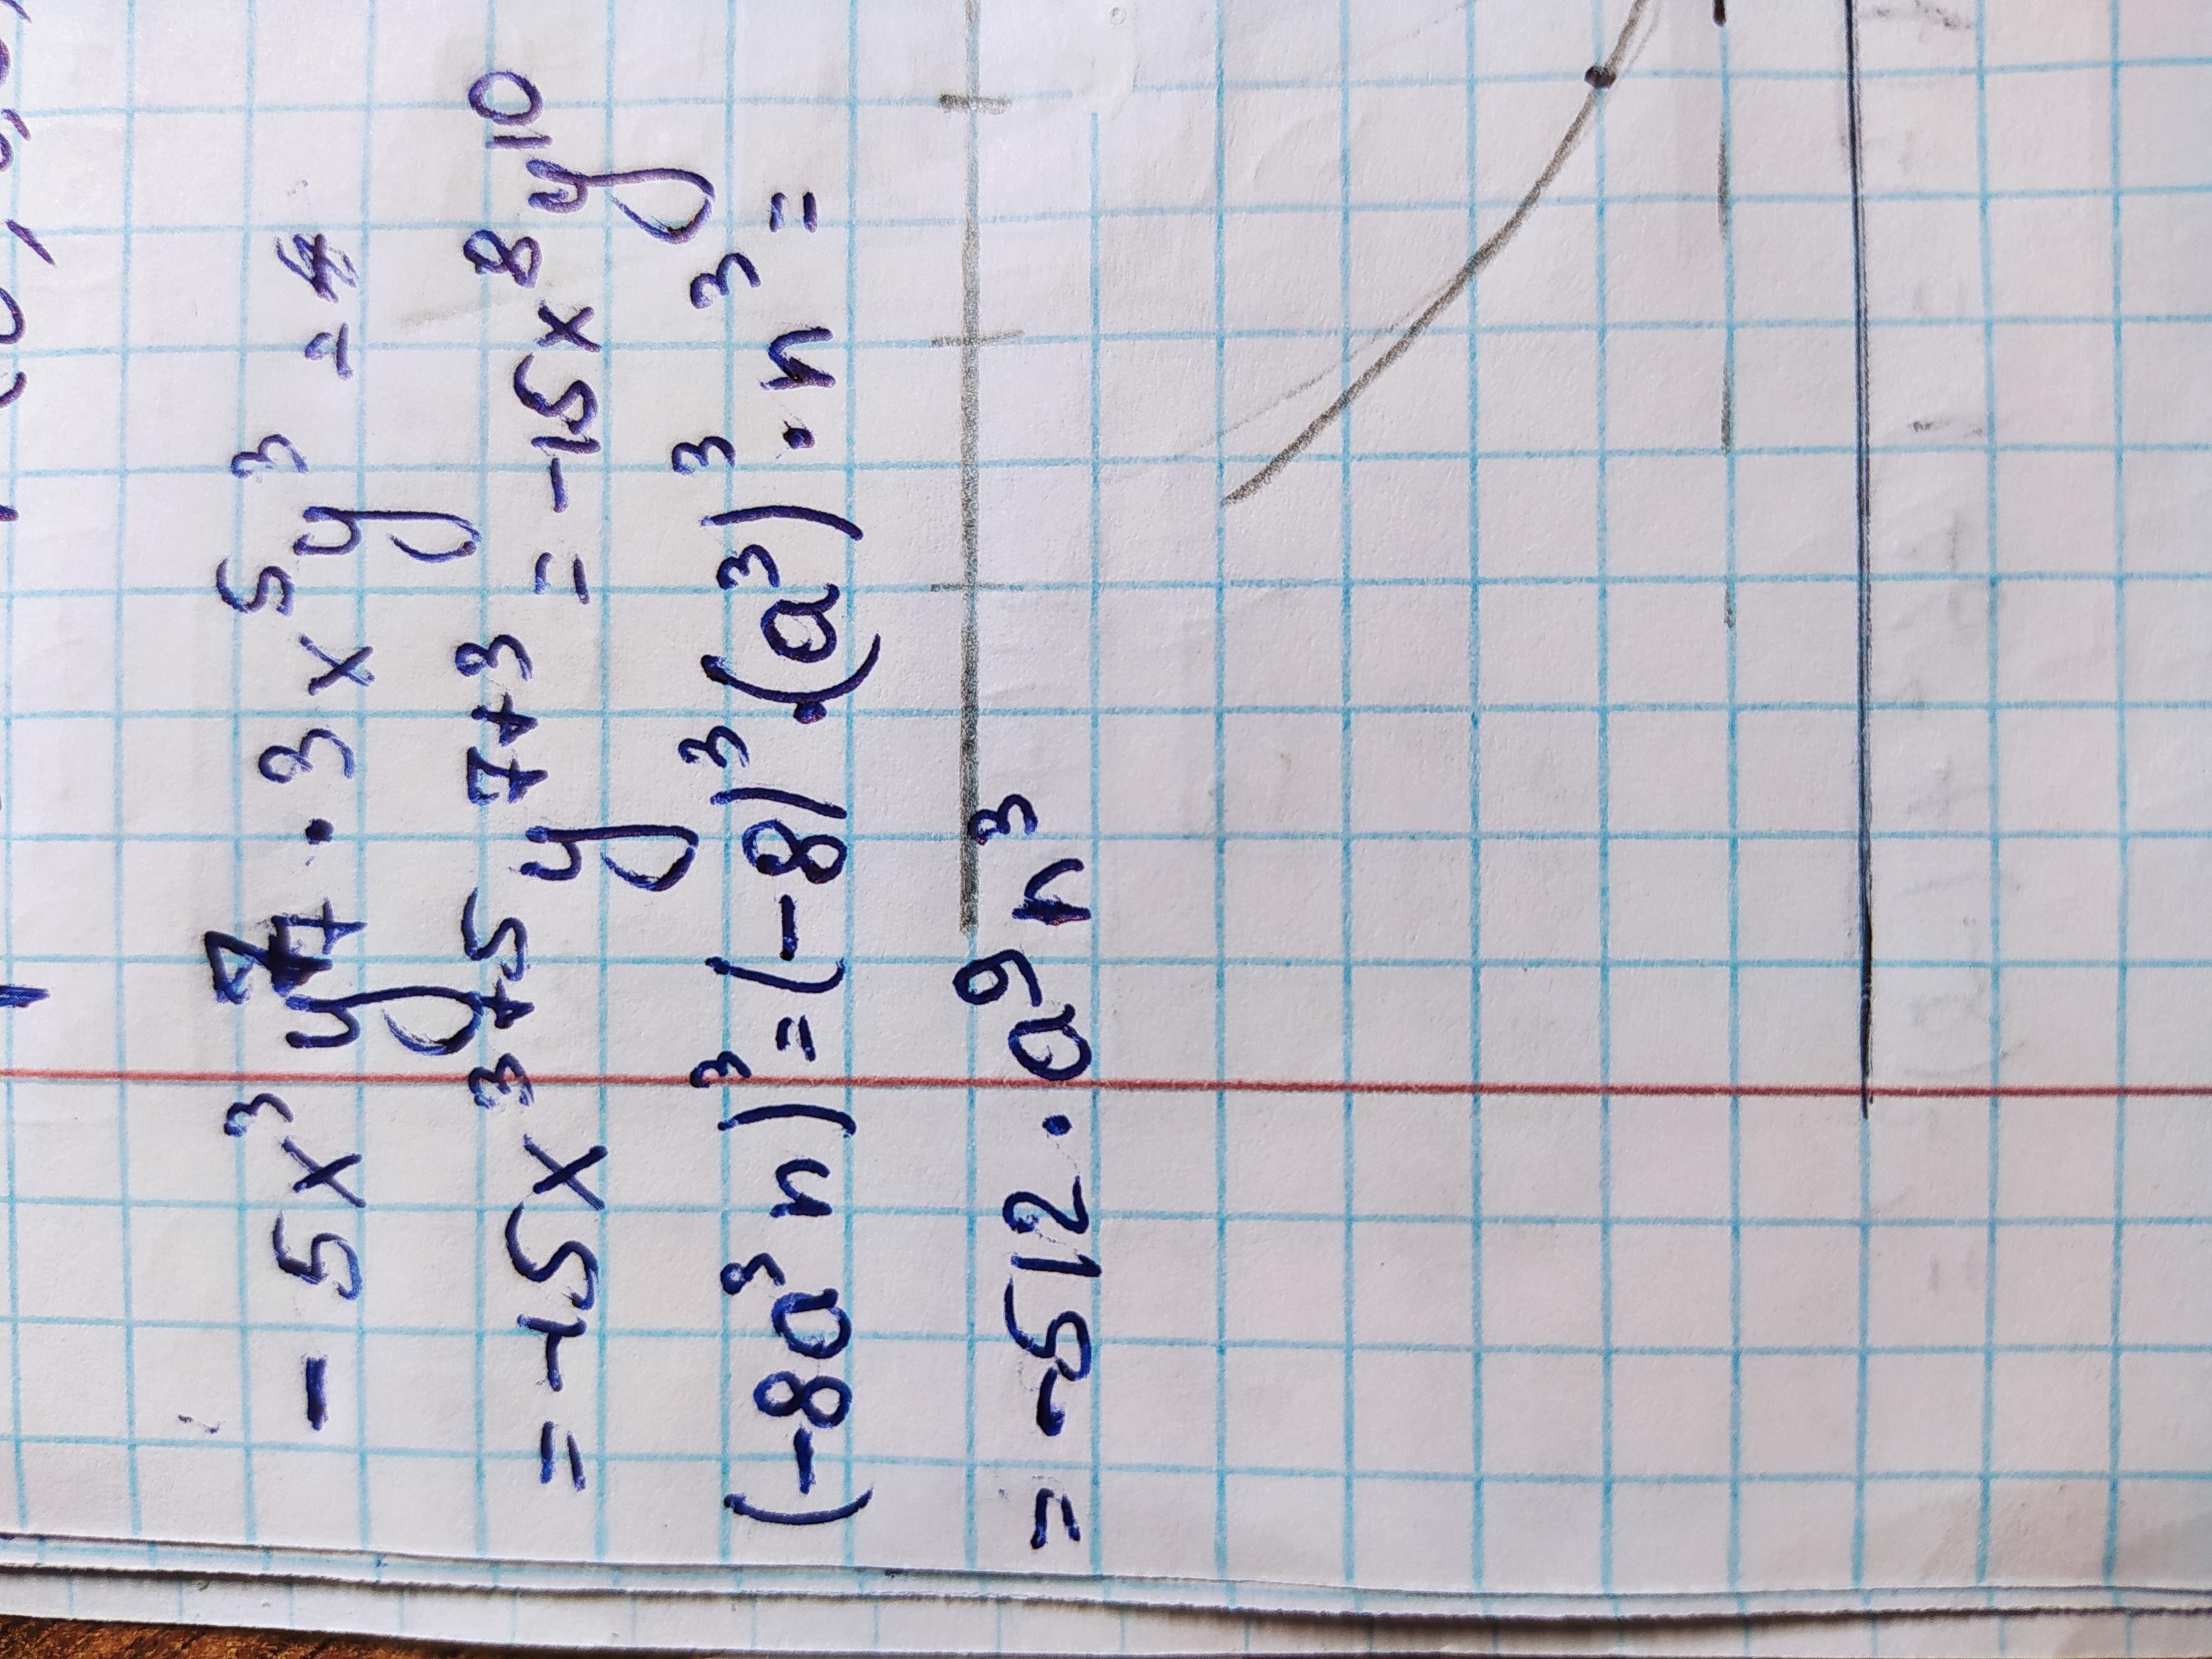 - 5x³y⁷ · 3x⁵y³ =
= -15x³⁺⁵y⁷⁺³ = -15x⁸y¹⁰
(-8a³n)³ = (-8)³·(a³)³·n³ =
= -512·a⁹n³